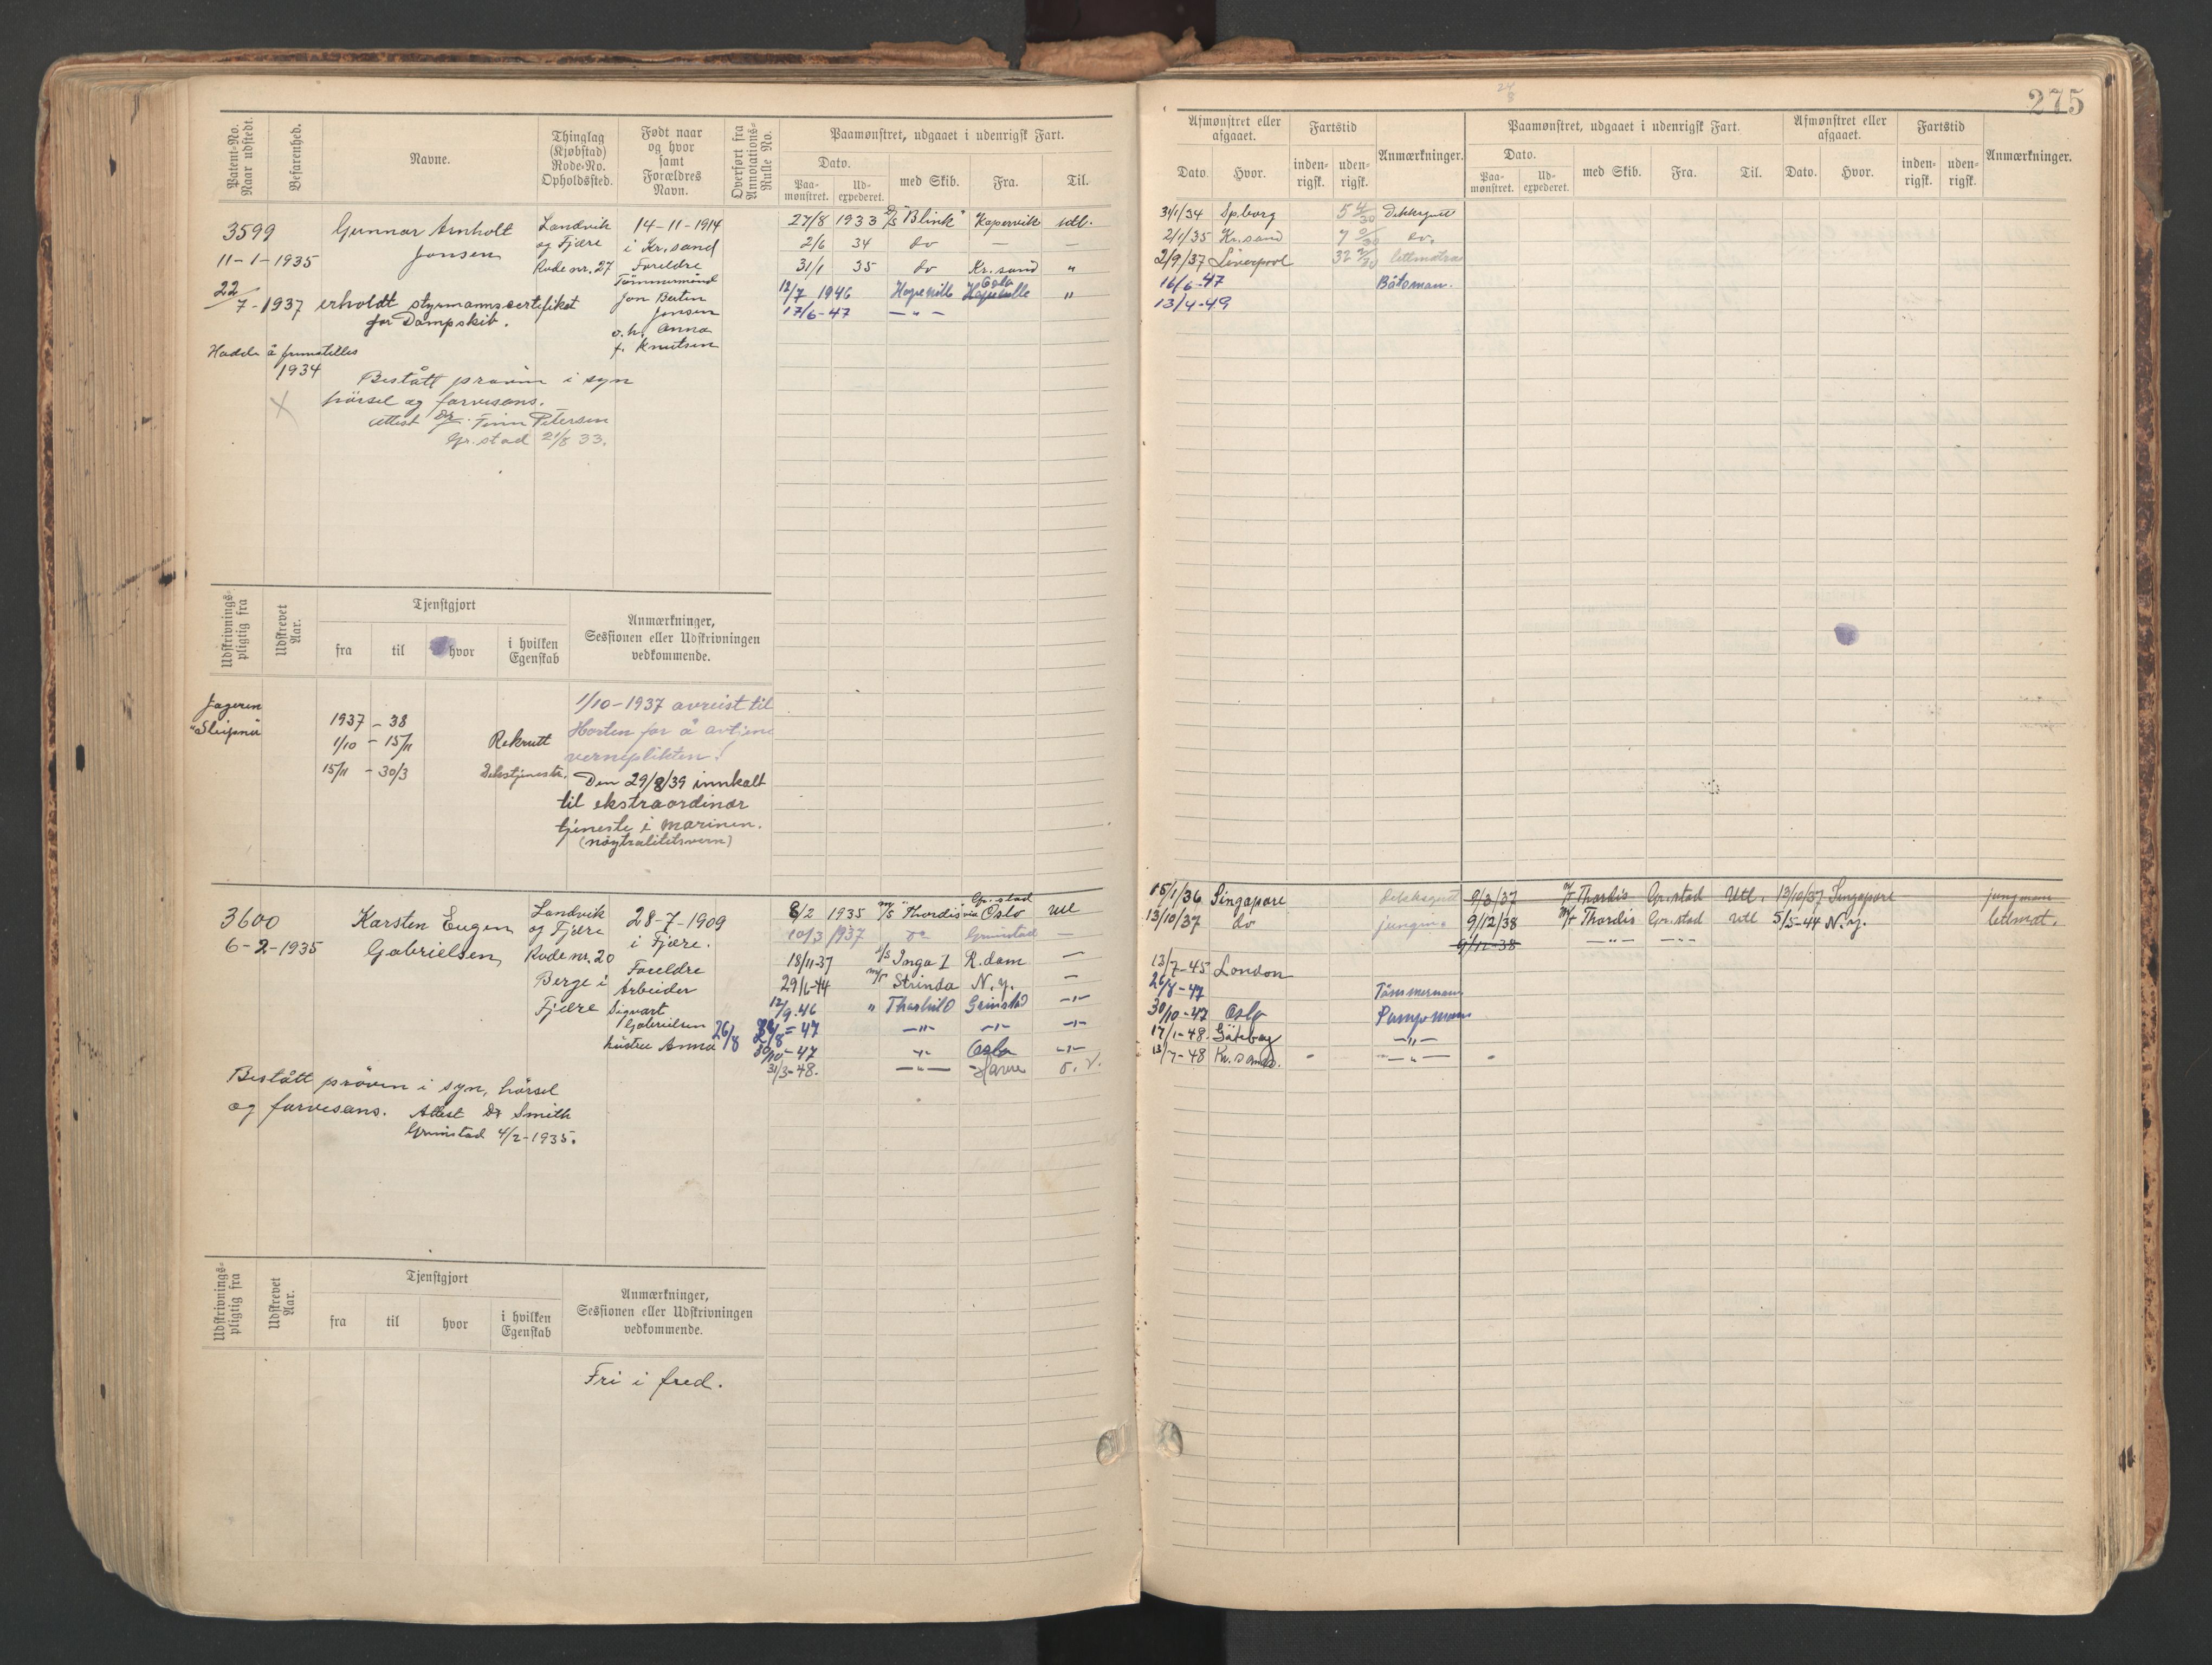 275
Patent-No. Naar udstedt.
Befarenhed.
Navne.
Thinglag (Kjøbstad) Rode-No. Opholdssted.
Født naar og hvor samt Forældres Navn.
Overført fra Annotations-Rulle No.
Paamønstret, udgaaet i udenrigsk Fart.
Dato.
Paa-mønstret.
Ud-expederet.
med Skib.
Fra.
Til.
Afmønstret eller afgaaet.
Dato.
Hvor.
Fartstid
inden-rigsk.
uden-rigsk.
Anmærkninger.
Paamønstret, udgaaet i udenrigsk Fart.
Dato.
Paa-mønstret.
Ud-expederet.
med Skib.
Fra.
Til.
Afmønstret eller afgaaet.
Dato.
Hvor.
Fartstid
inden-rigsk.
uden-rigsk.
Anmærkninger.
3599
11-1-1935
Gunnar Arnholt
Jonsen
Landvik
og Fjære
Rode nr. 27
14-11-1914
i Kr.sand
Foreldre
Tømmermand
Jon Bertin
Jonsen
o.h. Anna
f. Knutsen
22/7-1937 erholdt styrmannscertifikat
for Dampskib.
1934
Bestått prøven i syn
hörsel og farvesans.
Attest Dr. Finn Petersen
Gr.stad 21/8 33.
27/8 1933 D/S "Blink" Kopervik utl.
2/6 34 do — —
31/1 35 do Kr.sand "
12/7 1946 Hopeville Oslo "
17/6-47 — " —
31/1/34 Sp.borg Dekksgutt
2/1/35 Kr.sand do.
2/9/37 Liverpool lettmatros
16/6-47 Båtsman.
13/4-49
Udskrivnings-pligtig fra
Udskrevet Aar.
Tjenstgjort
fra
til
hvor
i hvilken Egenskab
Anmærkninger, Sessionen eller Udskrivningen vedkommende.
Jageren
"Sleipner"
1937 - 38
1/10 - 15/11 Rekrutt
15/11 - 30/3 Dekstjeneste.
1/10-1937 avreist til
Horten for å avtjene
verneplikten!
Den 29/8/39 innkalt
til ekstraordinær
tjeneste i marinen.
(nøytralitetsvern)
3600
6-2-1935
Karsten Eugen
Gabrielsen
Landvik
og Fjære
Rode nr. 20
Berge i
Fjære
28-7-1909
i Fjære.
Foreldre
Arbeider
Sigvart
Gabrielsen
hustru Anna
Bestått prøven i syn, hörsel
og farvesans. Attest Dr Smith
Grimstad 4/2-1935.
8/2 1935 M/S "Thordis" Gr.stad via Oslo utl
10/3 1937 do Grimstad —
18/11-37 D/S Inga I R.dam —
29/6-44 M/T Strinda N.y. —
12/9.46 " Thorshild Grimstad —"—
26/8 26/8-47 —"— —"— —"—
30/10-47 —"— Oslo —"—
31/3-48. —"— Havre o. v.
15/1/36 Singapore Dekksgutt
13/10/37 do jungm.
13/7-45 London
26/8-47 Tömmermann
30/10-47 Oslo Pumpemann
17/1-48. Göteborg —"—
13/7-48 Kr.sand. —"—
9/3/37 M/T Thordis Gr.stad Utl. 13/10/37 Singapore jungmann
9/12/38 M/T Thordis Gr.stad utl 5/5-44 N.y. lettmat.
9/12-38 —"— —"—
Udskrivnings-pligtig fra
Udskrevet Aar.
Tjenstgjort
fra
til
hvor
i hvilken Egenskab
Anmærkninger, Sessionen eller Udskrivningen vedkommende.
Fri i fred.